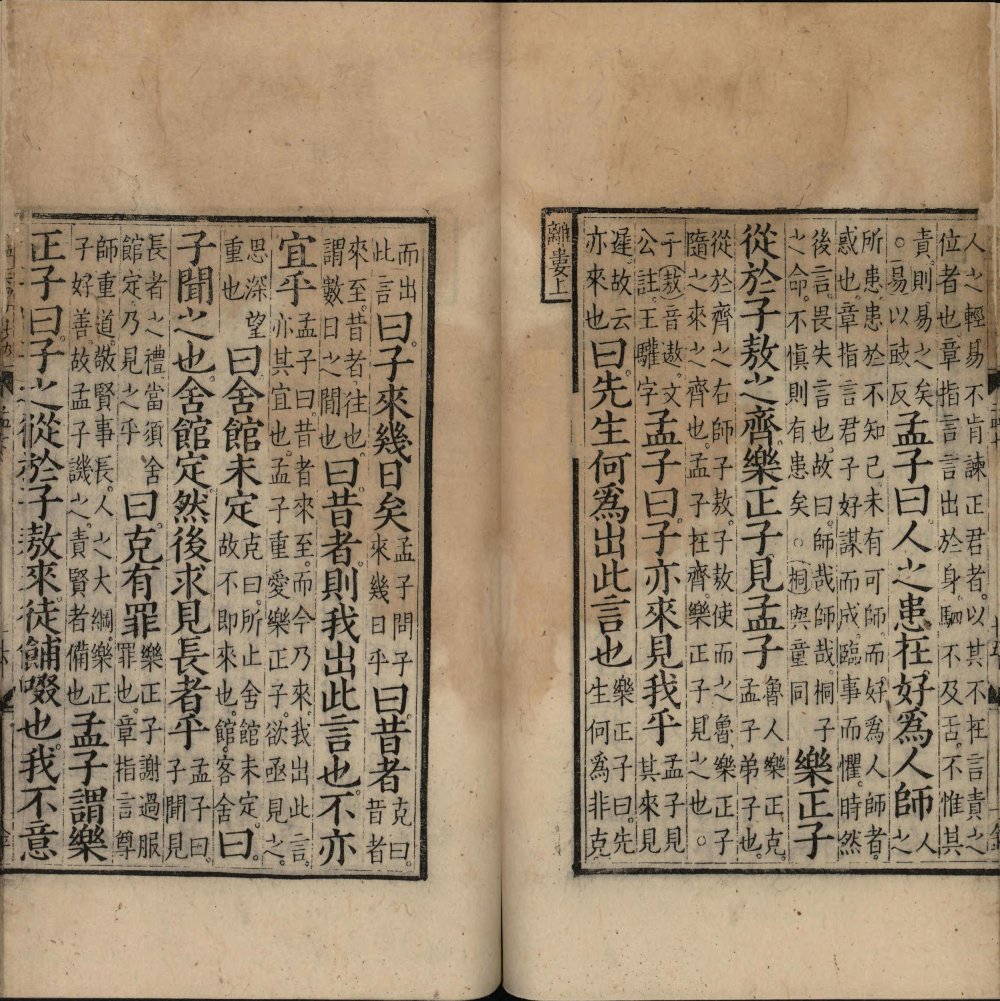 人之輕易不肯諫正君者以其不在言責之
位者也章指言言出於身駟不及舌不惟其
責則易之矣。○易以豉反孟子曰人之患在好爲人師人之
所患患於不知己未有可師而好爲人師者
惑也章指言君子好謀而成臨事而懼時然
後言畏失言也故曰師哉師哉桐子之命不愼則有患矣○桐與童同樂正子
從於子敖之齊樂正子見孟子魯人樂正克孟子弟子也
從於齊之右師子敖子敖使而之魯樂正子
隨之來之齊也孟子在齊樂正子見之也○
于敖音遨文公註王驩字孟子曰子亦來見我乎孟子見其來見
遲故云亦來也曰先生何爲出此言也樂正子曰先生何爲非克
離婁上
而出此言曰子來幾日矣孟子問子來幾日乎曰昔者克曰昔者
來至昔者往也謂數日之間也曰昔者則我出此言也不亦
宜乎孟子曰昔者來至而今乃來我出此言亦其宜也孟子重愛樂正子欲亟見之
思深望重也曰舍館未定克曰所止舍館未定故不即來也館客舍曰
子聞之也舍館定然後求見長者乎孟子曰子聞見
長者之禮當須舍館定乃見之乎曰克有罪樂正子謝過服罪也章指言尊
師重道敬賢事長人之大綱樂正子好善故孟子譏之責賢者備也孟子謂樂
正子曰子之從於子敖來徒餔啜也我不意